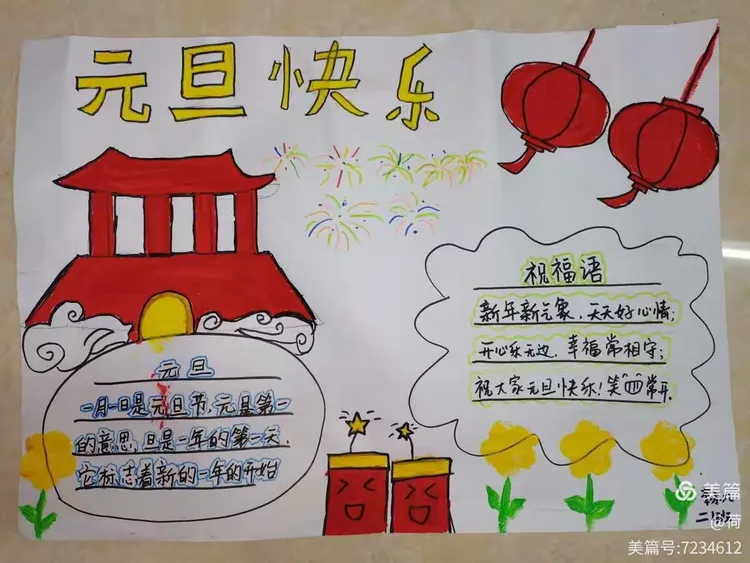 元旦快乐
元旦
一月一日是元旦节,元是第一
的意思,旦是一年的第一天.
它标志着新的一年的开始
祝福语
新年新气象,天天好心情;
开心乐无边,幸福常相守;
祝大家元旦快乐!笑"四"常开.
美篇
@荷
美篇号:7234612